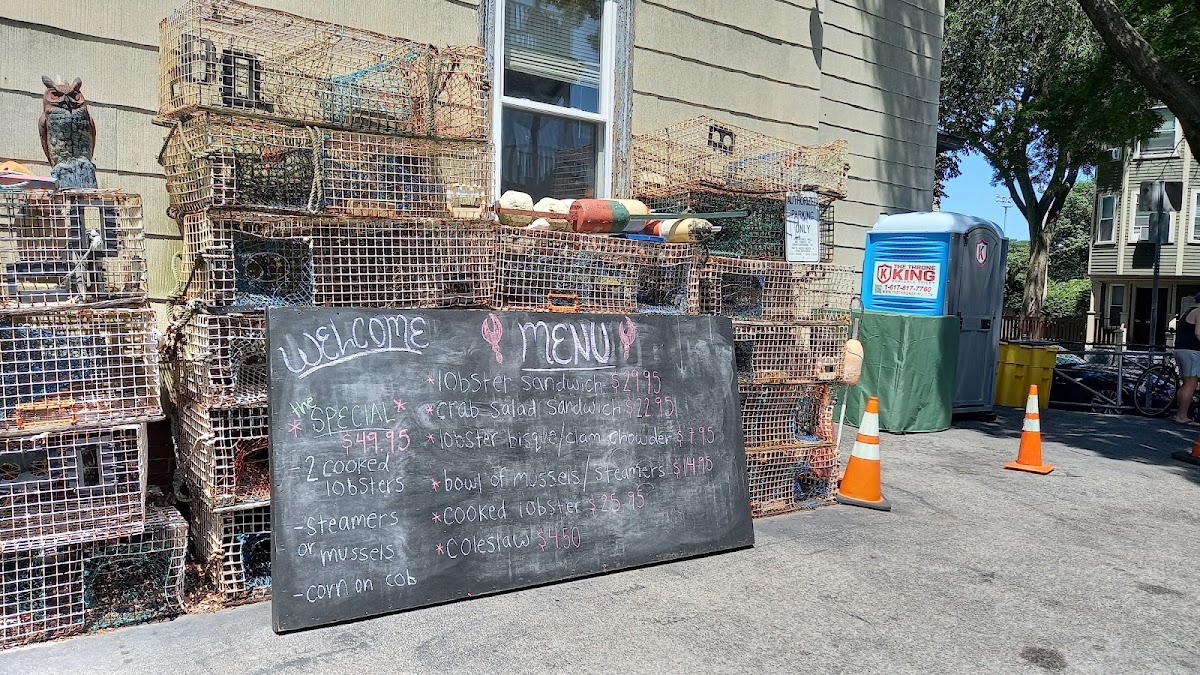 WELCOME
MENU
*lobster sandwich $29.95
*crab salad sandwich $22.95
*lobster bisque/clam chowder $7.95
*bowl of mussels/steamers $14.95
*cooked lobster $25.95
*coleslaw $4.50
the
*SPECIAL*
$49.95
-2 cooked
lobsters
-steamers
or mussels
-corn on cob
AUTHORIZED
PARKING
ONLY
K
THE THRONE
KING
1-617-817-7760
K